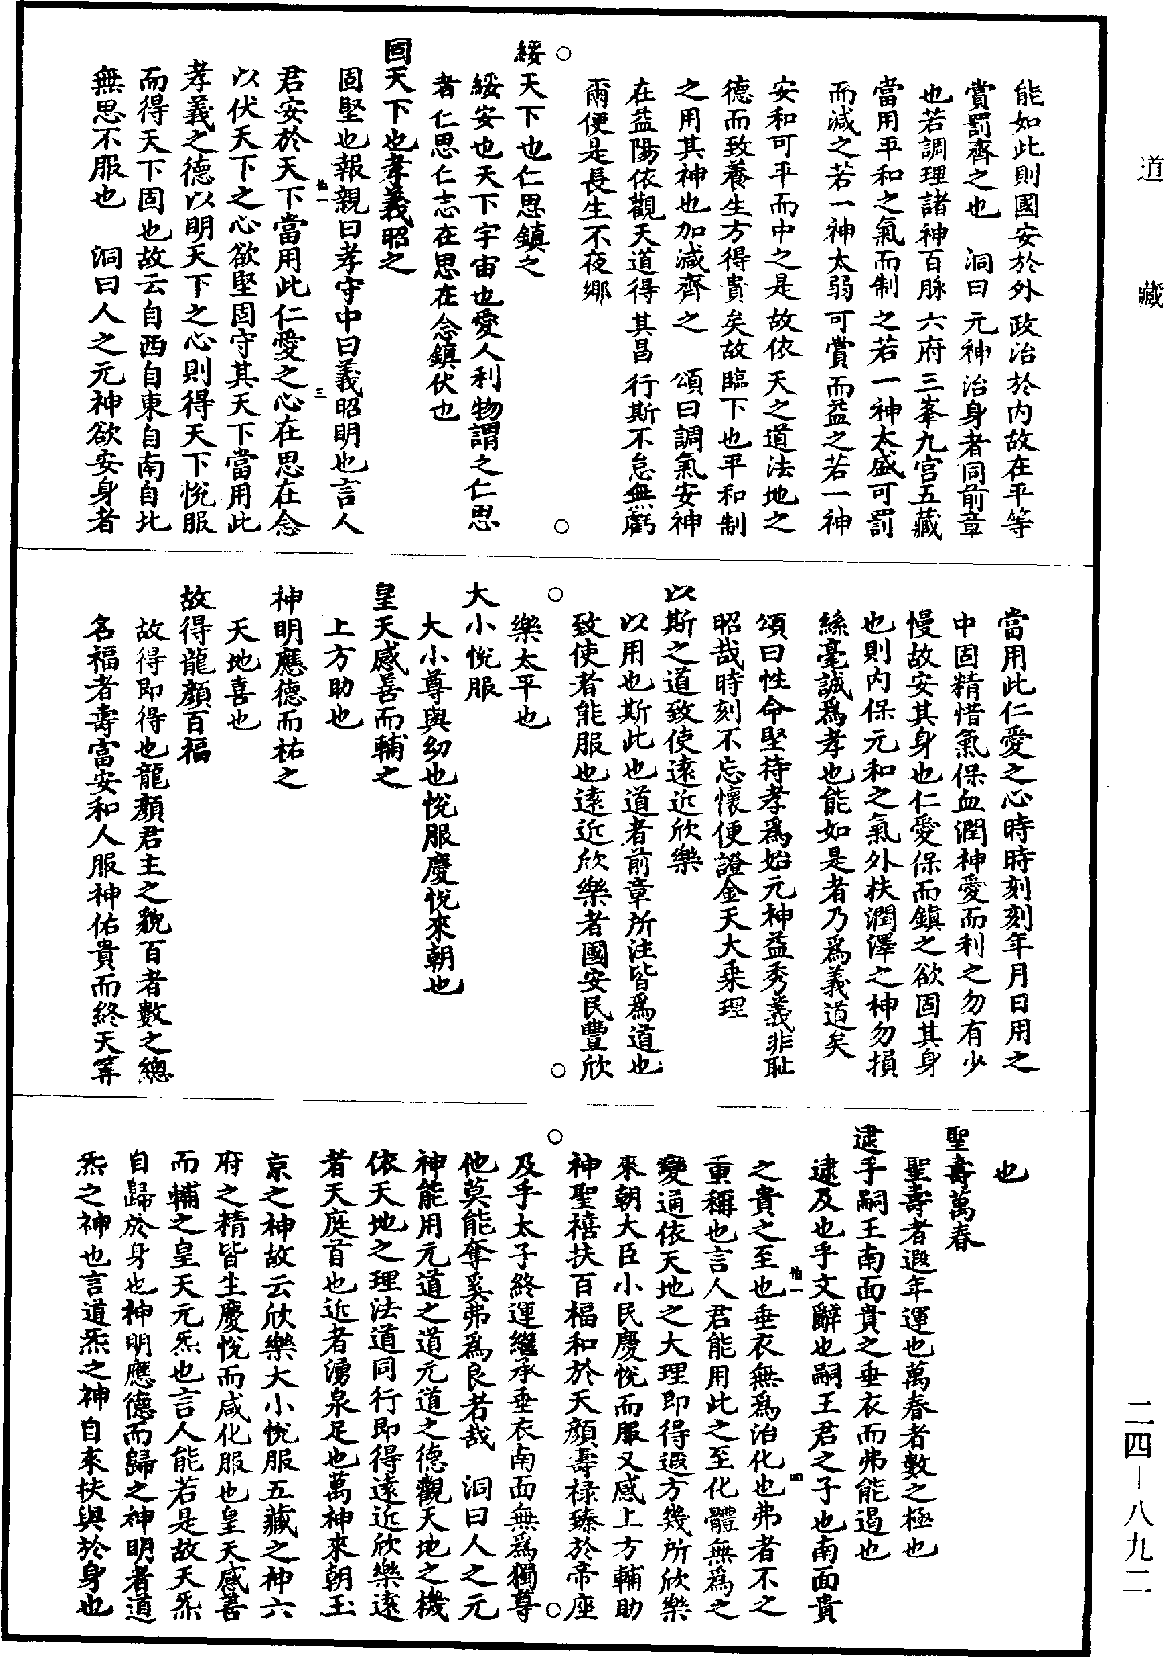 道藏
能如此則國安於外政治於內故在平等
賞罰齊之也　洞曰元神治身者同前章
也若調理諸神百脉六府三峯九宫五藏
當用平和之氣而制之若一神太盛可罰
而減之若一神太弱可賞而益之若一神
安和可平而中之是故依天之道法地之
德而致養生方得貴矣故臨下也平和制
之用其神也加減齊之　頌曰調氣安神
在益陽依觀天道得其昌行斯不怠無虧
爾便是長生不夜鄉
○　○
綏天下也仁恩鎮之
綏安也天下宇宙也愛人利物謂之仁恩
者仁思仁志在思在念鎮伏也
固天下也孝義昭之
固堅也報親曰孝守中曰義昭明也言人
君安於天下當用此仁愛之心在思在念
以伏天下之心欲堅固守其天下當用此
孝義之德以明天下之心則得天下悅服
而得天下固也故云自西自東自南自北
無思不服也　洞曰人之元神欲安身者
當用此仁愛之心時時刻刻年月日用之
中固精惜氣保血潤神愛而利之勿有少
慢故安其身也仁愛保而鎮之欲固其身
也則內保元和之氣外扶潤澤之神勿損
絲毫誠爲孝也能如是者乃爲義道矣
頌曰性命堅持孝爲始元神益秀義非耻
昭哉時刻不忘懷便證金天大乘理
以斯之道致使遠近欣樂
以用也斯此也道者前章所注皆爲道也
致使者能服也遠近欣樂者國安民豐欣
○　○
樂太平也
大小悅服
大小尊與幼也悅服慶悅來朝也
皇天感善而輔之
上方助也
神明應德而祐之
天地喜也
故得龍顏百福
故得即得也龍顏君主之貌百者數之總
名福者壽富安和人服神佑貴而終天筭
也
聖壽萬春
聖壽者遐年運也萬春者數之極也
逮乎嗣王南面貴之垂衣而弗能遏也
逮及也乎文辭也嗣王君之子也南面貴
之貴之至也垂衣無爲治化也弗者不之
重稱也言人君能用此之至化體無爲之
變通依天地之大理即得遐方幾所欣樂
來朝大臣小民慶悅而服又感上方輔助
神聖禧扶百福和於天顏壽祿臻於帝座
○　○
及乎太子終運繼承垂衣南面無爲獨尊
他莫能奪奚弗爲良者哉　洞曰人之元
神能用元道之道元道之德觀天地之機
依天地之理法道同行即得遠近欣樂遠
者天庭首也近者湧泉足也萬神來朝玉
京之神故云欣樂大小悅服五藏之神六
府之精皆生慶悅而咸化服也皇天感善
而輔之皇天元炁也言人能若是故天炁
自歸於身也神明應德而歸之神明者道
炁之神也言道炁之神自來扶與於身也
二四—八九二